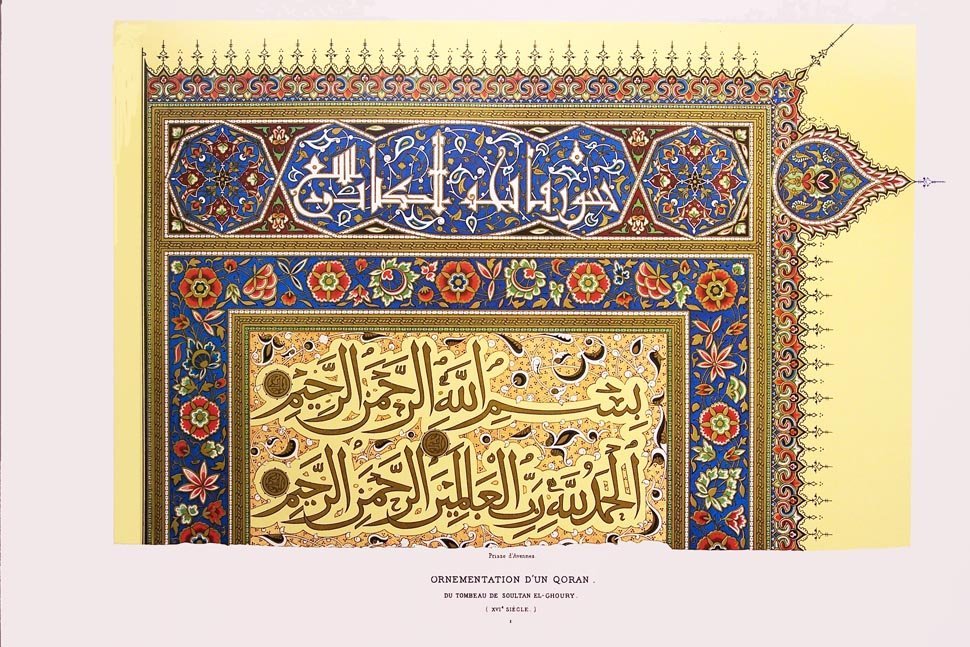 سورة فاتحة الكتاب
بِسْمِ اللَّهِ الرَّحْمَنِ الرَّحِيمِ
الْحَمْدُ لِلَّهِ رَبِّ الْعَالَمِينَ الرَّحْمَنِ الرَّحِيمِ
Prisse d'Avennes
ORNEMENTATION D'UN QORAN.
DU TOMBEAU DE SOULTAN EL-GHOURY.
( XVIᵉ SIÈCLE. )